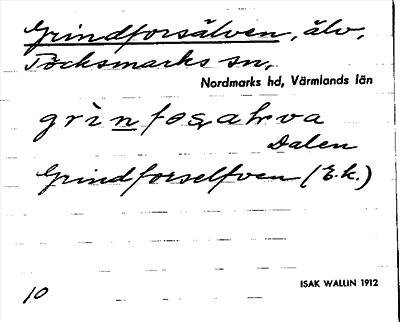 Grindforsälven, älv,
Töcksmarks sn,
Nordmarks hd, Värmlands län
Dalen
Grindforselfven (E.k.)
ISAK WALLIN 1912
10